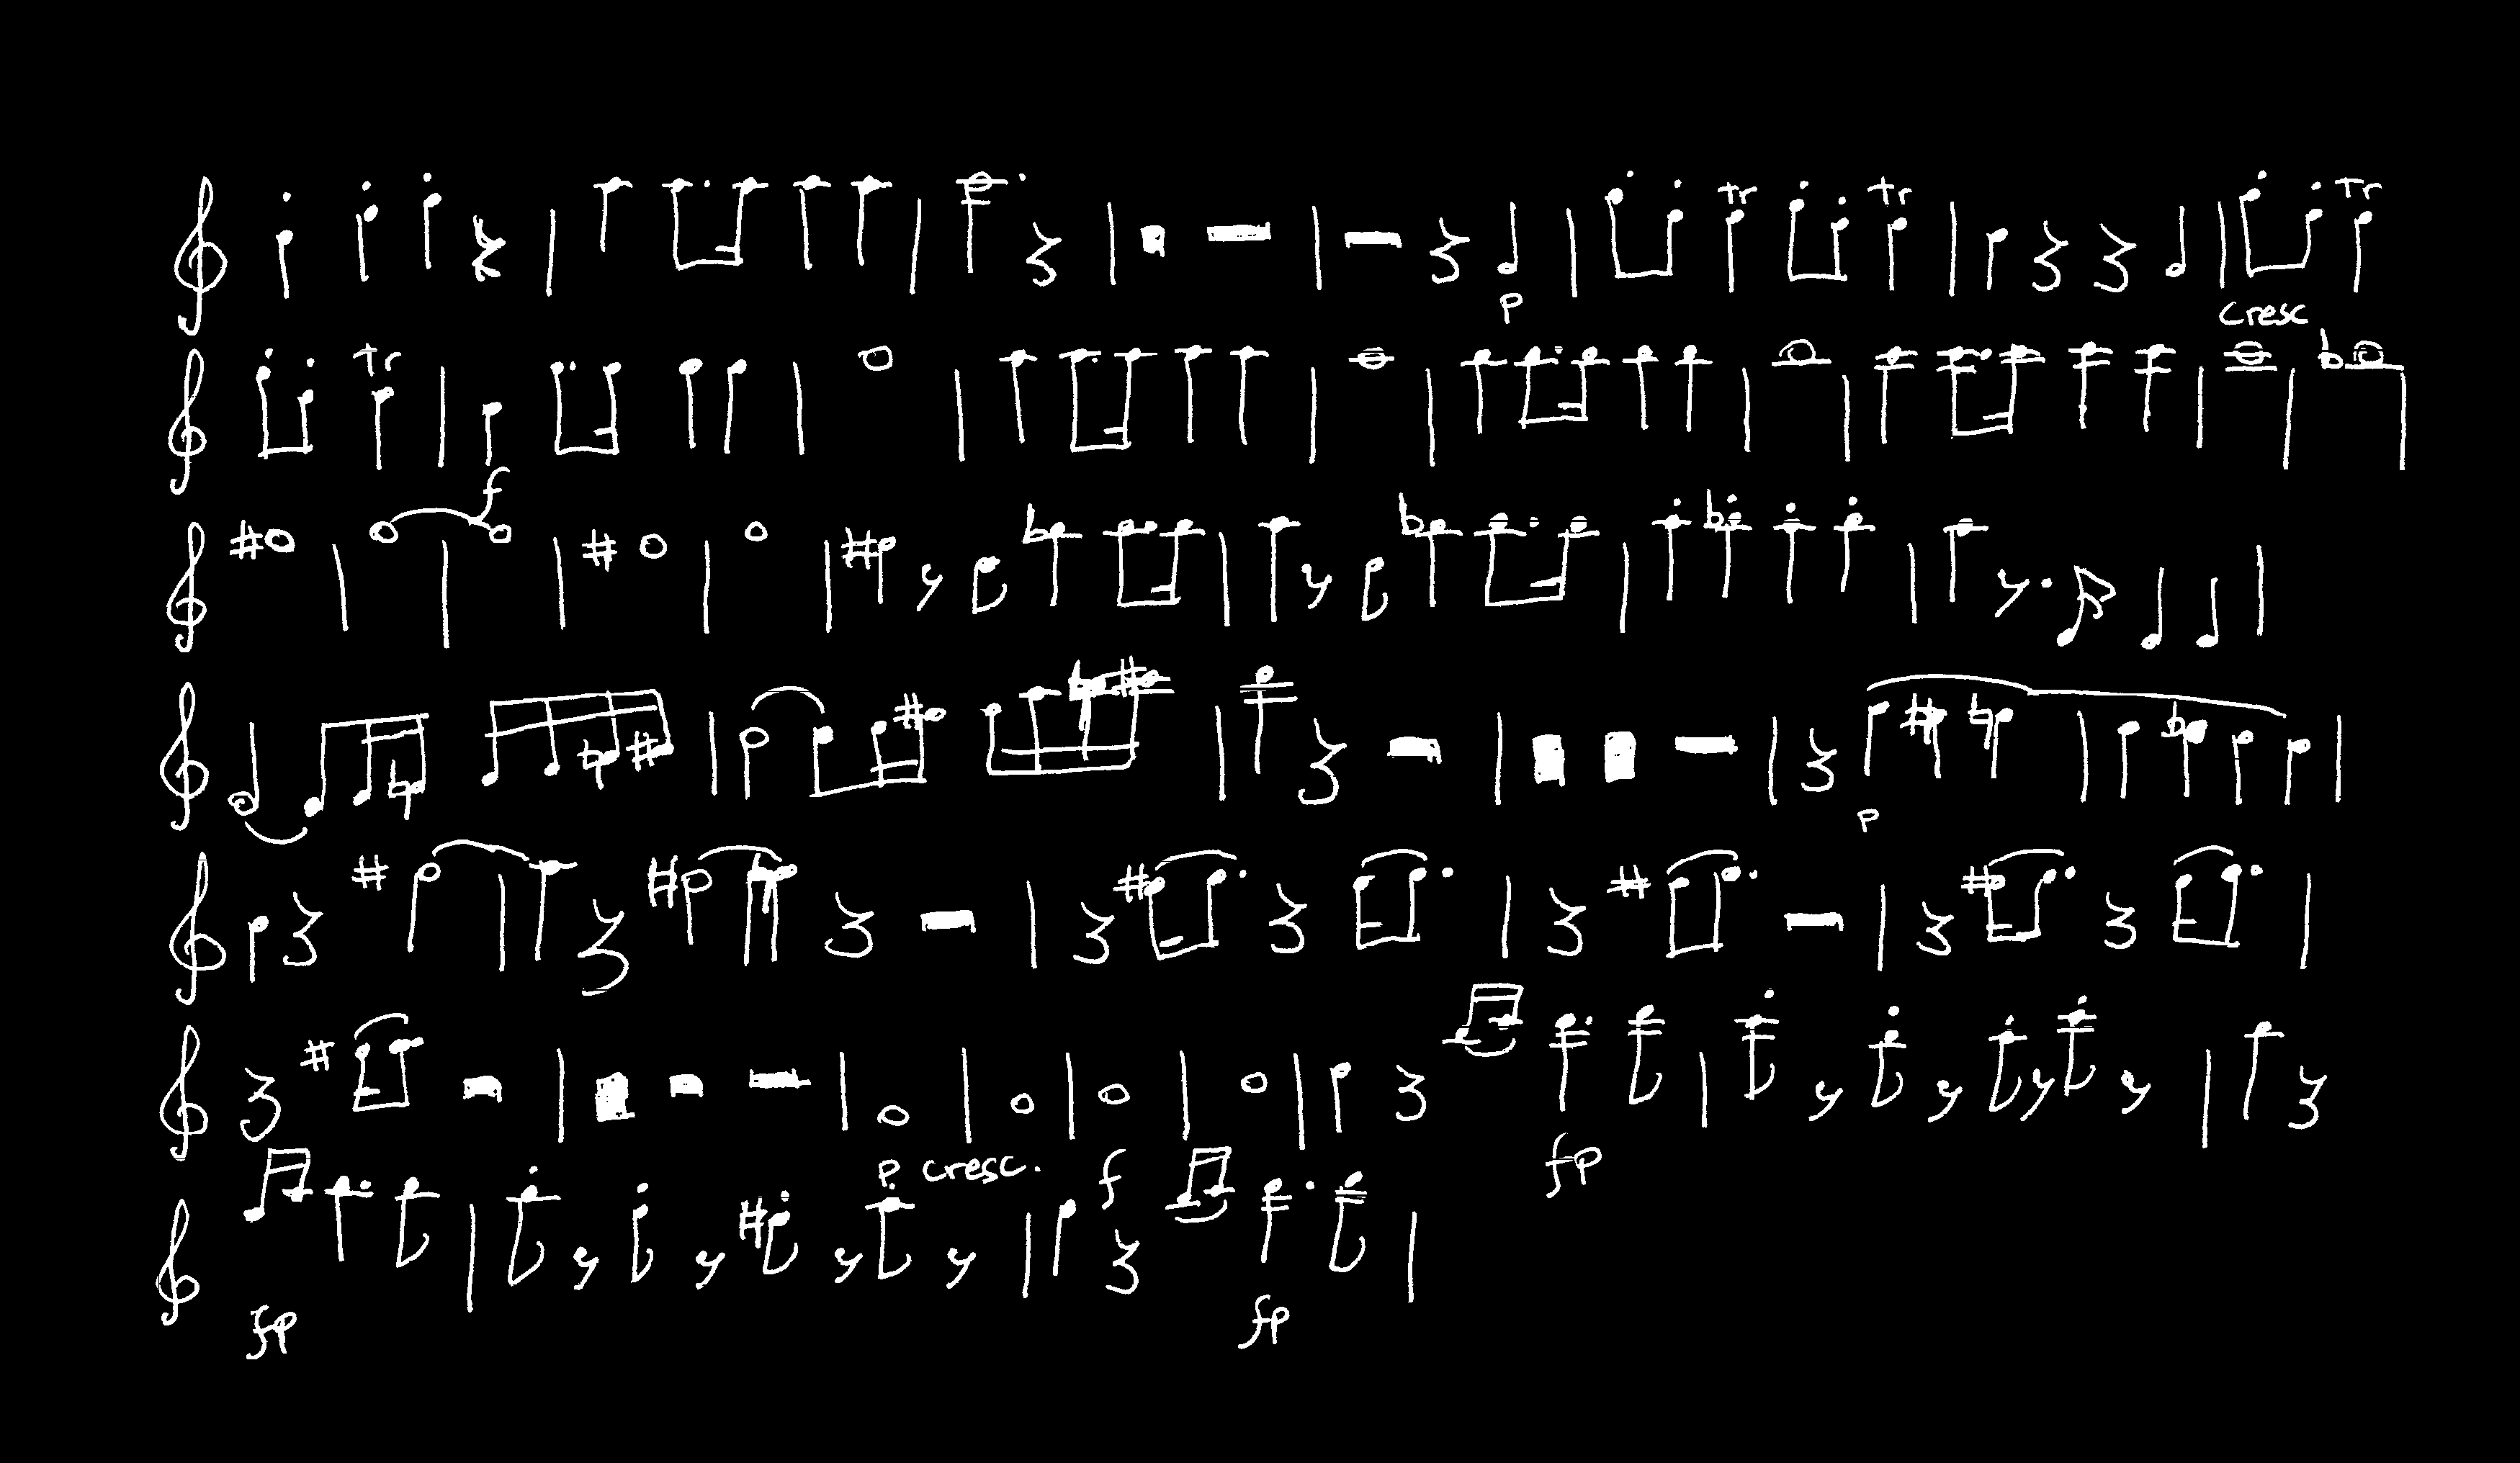 Tr Tr Tr
p cresc
Tr
f
p
p cresc. f fp
fp fp